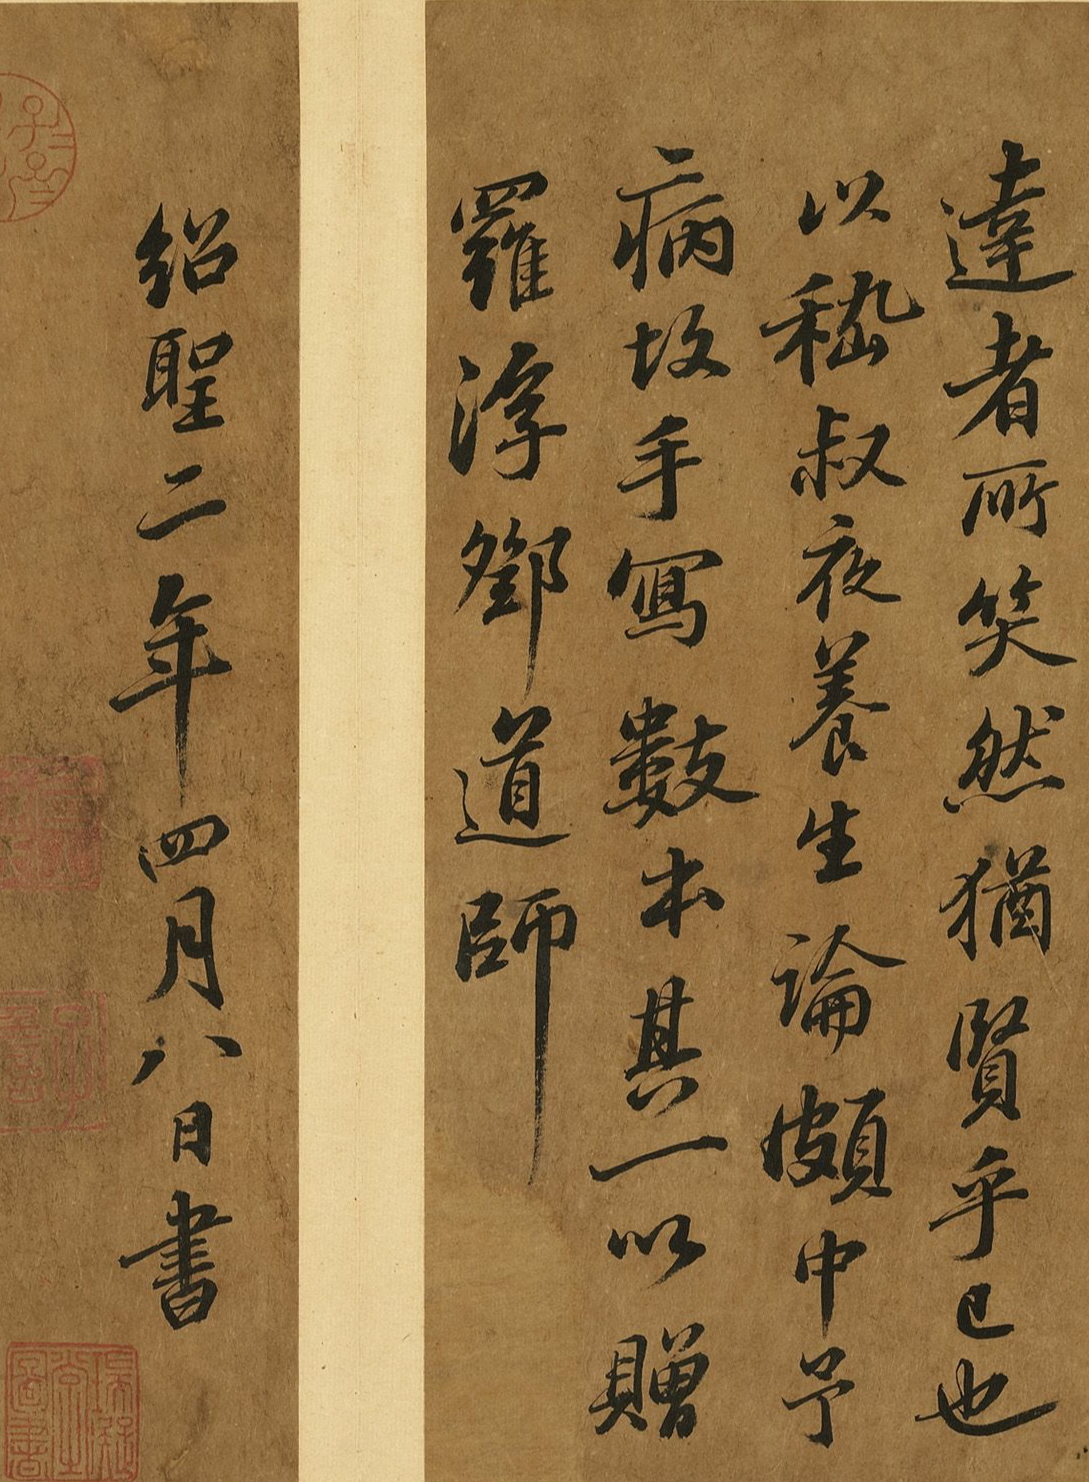 達者所笑然猶賢乎已也
以嵇叔夜養生論頗中予
病故手寫數本其一以贈
羅浮鄧道師
紹聖二年四月八日書